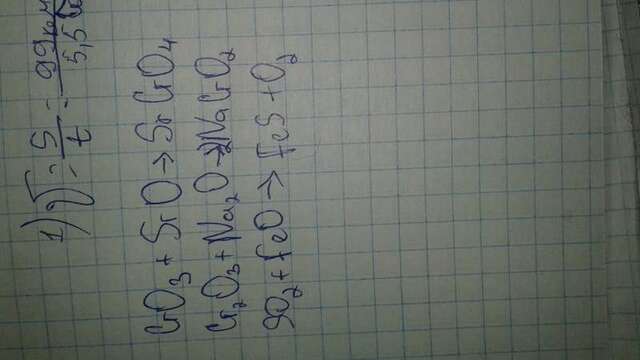 1) V = S/t = 99км/5,5
CrO₃ + SrO → SrCrO₄
Cr₂O₃ + Na₂O → 2NaCrO₂
SO₂ + FeO → FeS + O₂